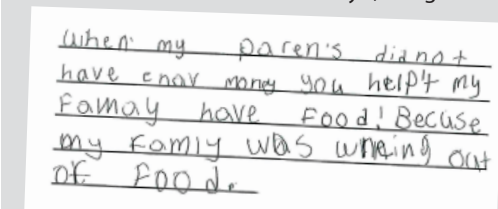 when my paren's didnot
have enav mony you help't my
Famay have Food! Becuse
my Famly was runing out
of Food.